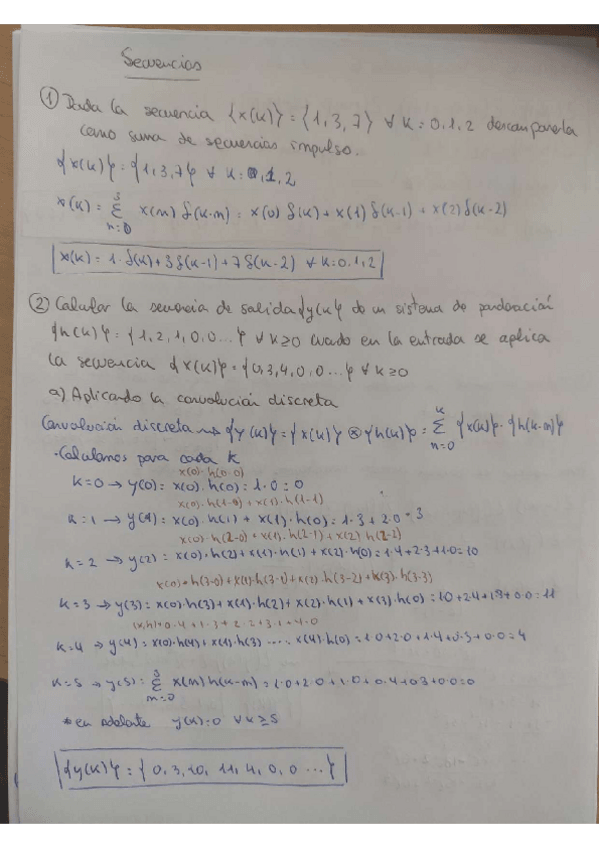 Secuencias
① Dada la secuencia {x(k)} = {1, 3, 7} ∀ k = 0, 1, 2 descomponerla
como suma de secuencias impulso.
{x(k)} = {1, 3, 7} ∀ k = 0, 1, 2
x(k) = Σ x(n) δ(k-n) = x(0) δ(k) + x(1) δ(k-1) + x(2) δ(k-2)
x(k) = 1·δ(k) + 3 δ(k-1) + 7 δ(k-2) ∀ k = 0, 1, 2
② Calcular la secuencia de salida {y(k)} de un sistema de ponderación
{h(k)} = {1, 2, 1, 0, 0 ...} ∀ k ≥ 0 cuando en la entrada se aplica
la secuencia {x(k)} = {0, 3, 4, 0, 0 ...} ∀ k ≥ 0
a) Aplicando la convolución discreta
Convolución discreta → {y(k)} = {x(k)} ⊗ {h(k)} = Σ {x(k)}·{h(k-n)}
· Calculamos para cada k
x(0)·h(0-0)
k = 0 → y(0) = x(0)·h(0) = 1·0 = 0
x(0)·h(1-0) + x(1)·h(1-1)
k = 1 → y(1) = x(0)·h(1) + x(1)·h(0) = 1·3 + 2·0 = 3
x(0)·h(2-0) + x(1)·h(2-1) + x(2)·h(2-2)
k = 2 → y(2) = x(0)·h(2) + x(1)·h(1) + x(2)·h(0) = 1·4 + 2·3 + 1·0 = 10
x(0)·h(3-0) + x(1)·h(3-1) + x(2)·h(3-2) + x(3)·h(3-3)
k = 3 → y(3) = x(0)·h(3) + x(1)·h(2) + x(2)·h(1) + x(3)·h(0) =
k = 4 → y(4) = x(0)·h(4) + x(1)·h(3) ..... x(4)·h(0) = 1·0 + 2·0 + 1·4 + 0·3 + 0·0 = 4
k = 5 → y(5) = Σ x(n) h(k-n) = 1·0 + 2·0 + 1·0 + 0·4 + 0·3 + 0·0 = 0
* en adelante y(k) = 0 ∀ k ≥ 5
{y(k)} = {0, 3, 10, 11, 4, 0, 0 ...}